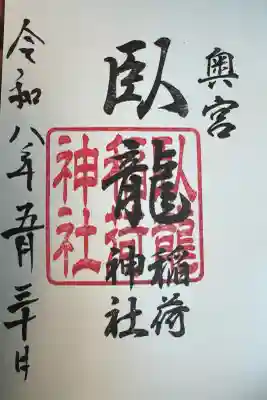 奥宮
臥龍稲荷神社
臥龍稲荷神社
令和八年五月三十日